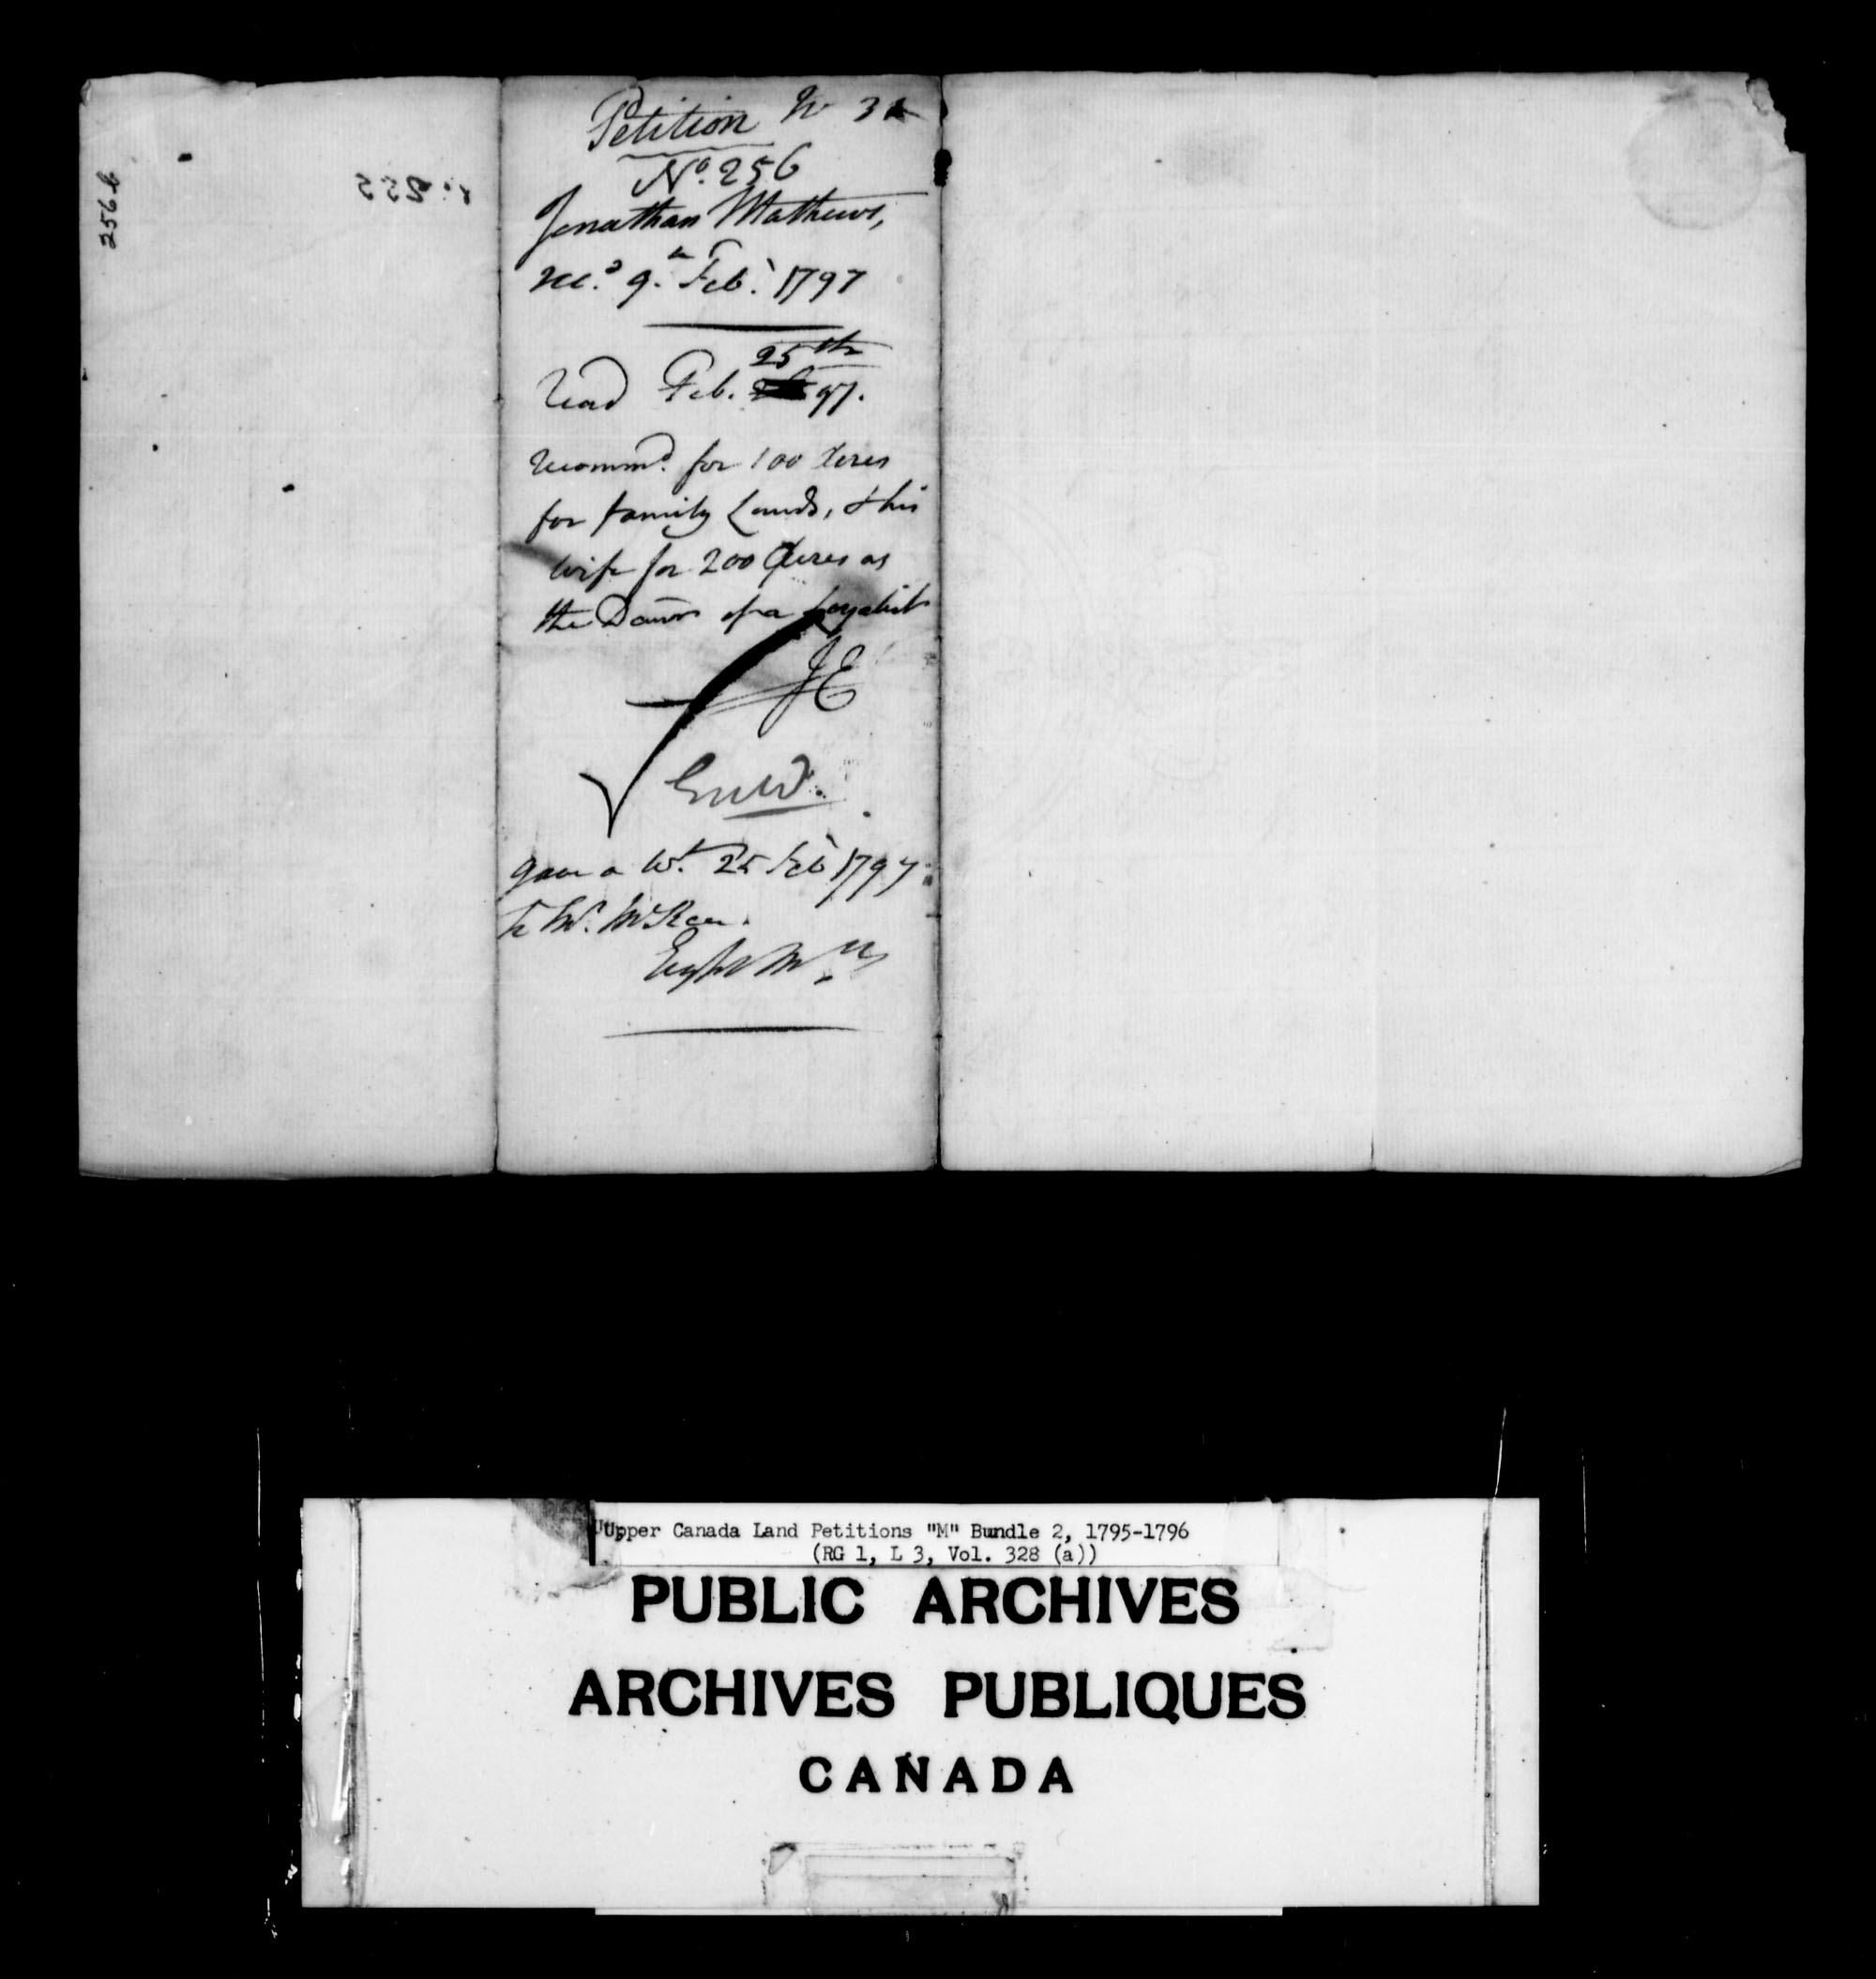 256b
Petition
No. 256
Jonathan Mathews,
recd. 9th Feb. 1797
25th
Read Feb. 97.
recommd. for 100 Acres
for family Lands, & his
wife for 200 Acres as
the Daur of a Loyalist
JE
Entd.
gave a Wt. 25 Feb 1797
to Mr. McKee.
Upper Canada Land Petitions "M" Bundle 2, 1795-1796
(RG 1, L 3, Vol. 328 (a))
PUBLIC ARCHIVES
ARCHIVES PUBLIQUES
CANADA